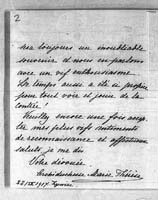 2
rez toujours un inoubliable
souvenir et nous en parlons
avec un vif enthousiasme.
Le temps aussi a été si propice
pour tout voir et jouir de la
contrée!
Veuillez encore une fois accep-
ter mes plus vifs sentiments
de reconnaissance et affectueux
saluts, je me dis
Votre dévouée
Archiduchesse Marie Thérèse
22/IX 1907